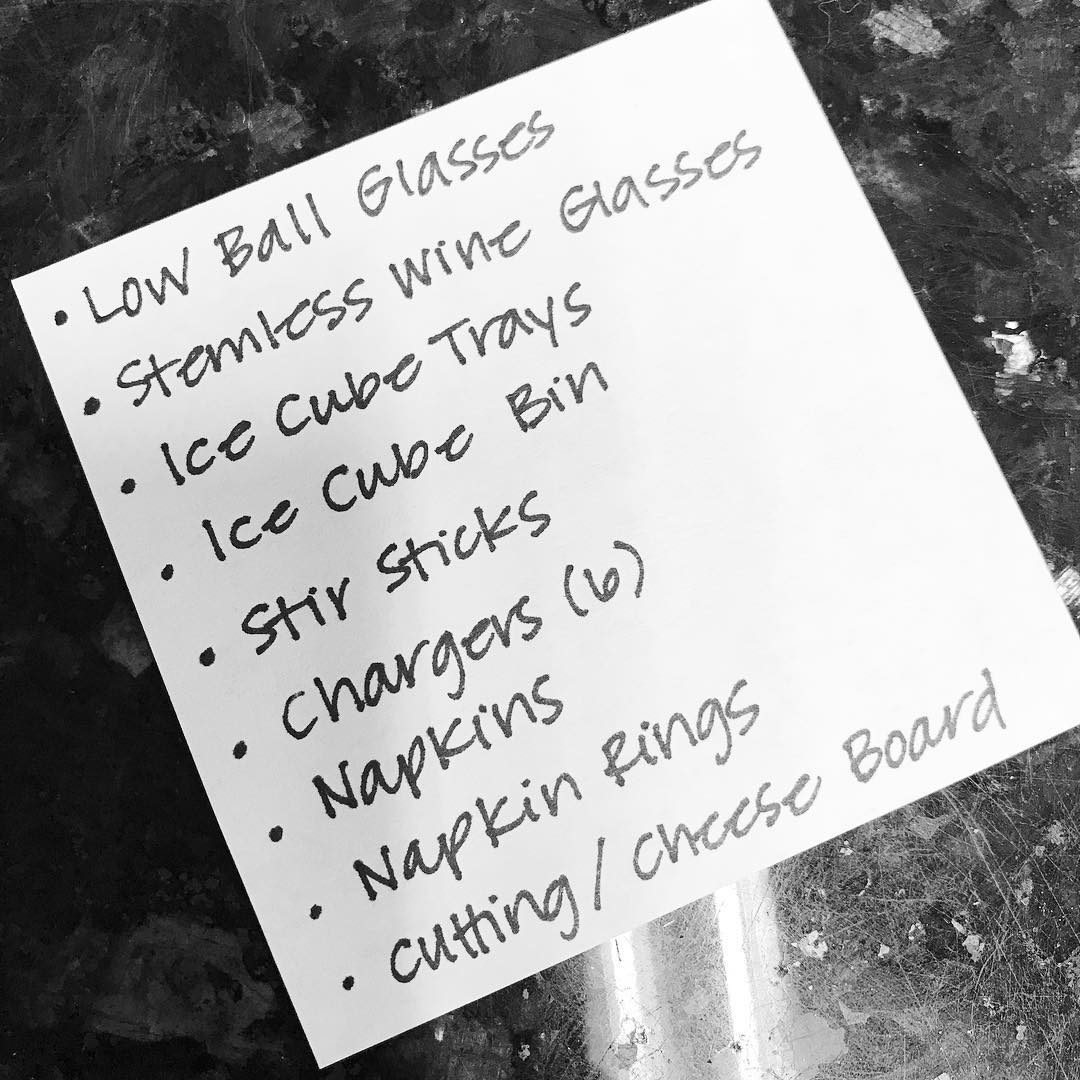 • Low Ball Glasses
• Stemless Wine Glasses
• Ice Cube Trays
• Ice Cube Bin
• Stir Sticks
• Chargers (6)
• Napkins
• Napkin Rings
• Cutting/Cheese Board